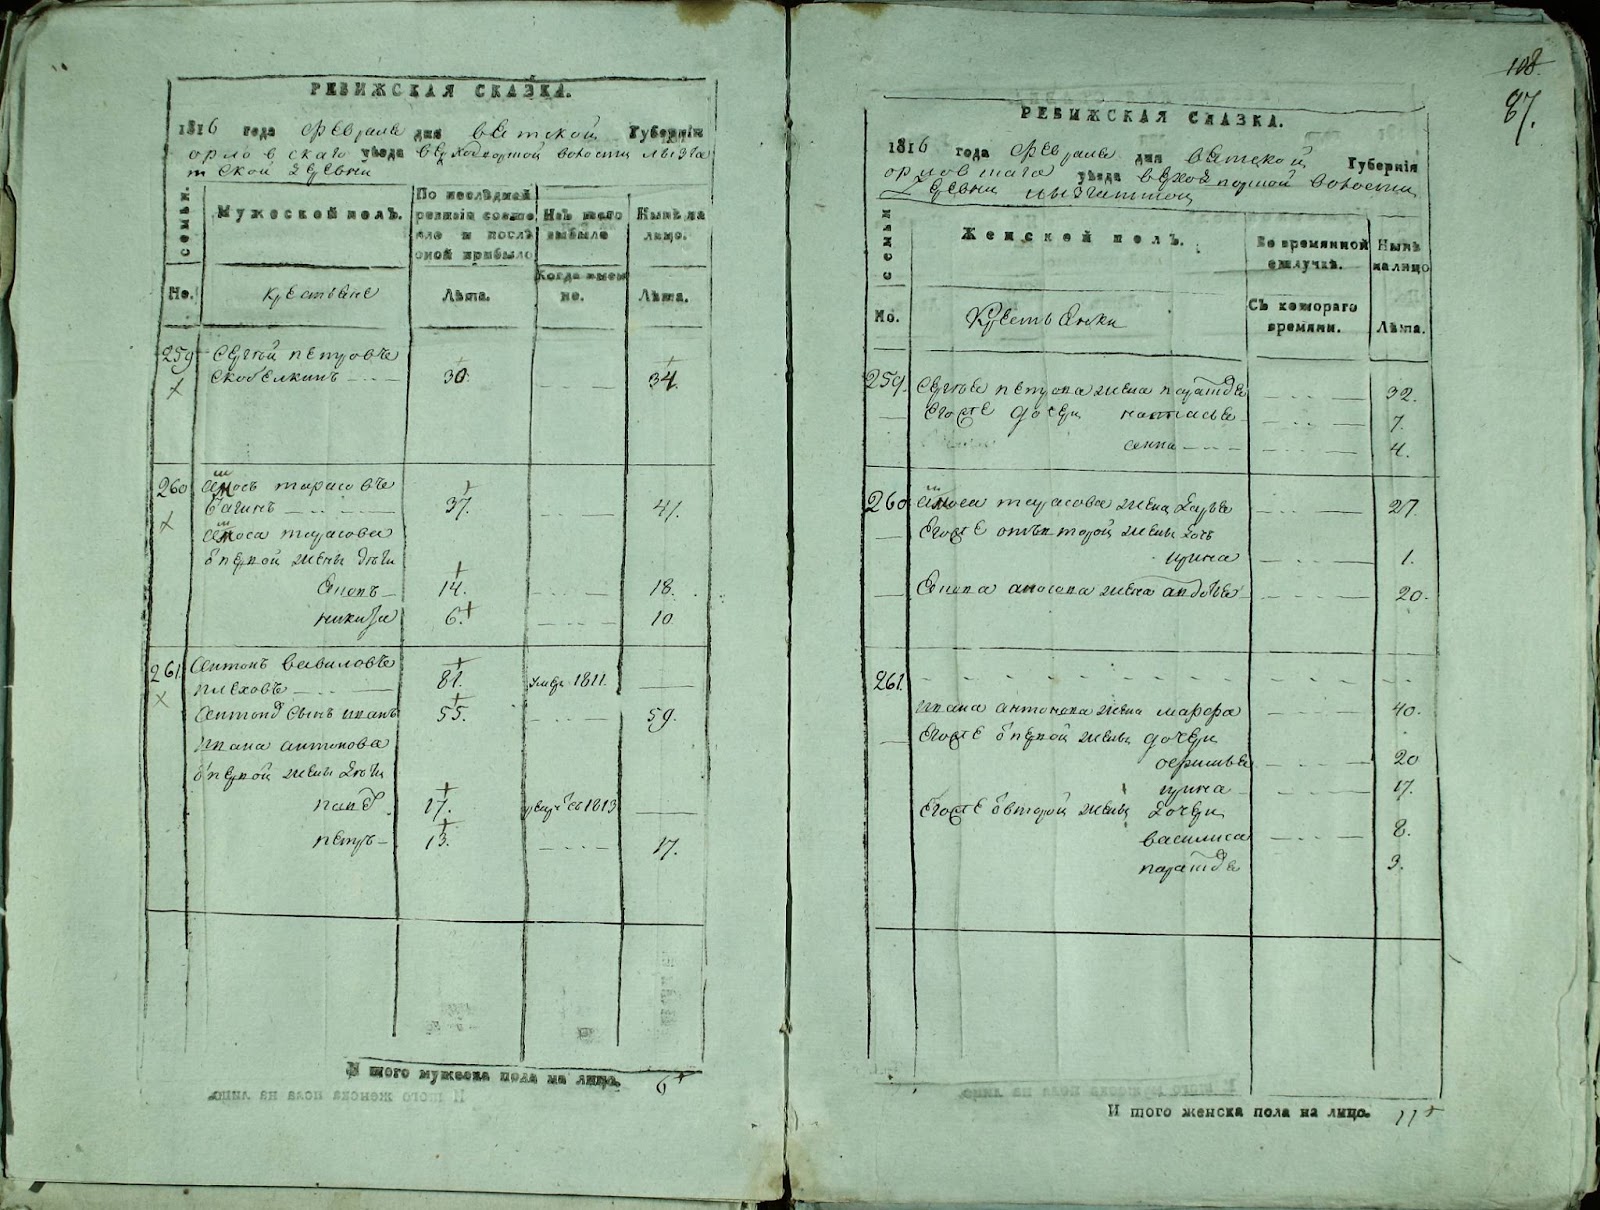 РЕВИЖСКАЯ СКАЗКА.
1816 года февраля дня вятской Губернїи
орловскаго уѣзда волости лызга
тской деревни
семьи.
Мужеской полъ.
По послѣдней ревизїи состояло и послѣ оной прибыло
Изъ того выбыло
Нынѣ на лицо.
Но.
крестьяне
Лѣта.
Когда имянно.
Лѣта.
259 Сергѣй петровъ
скобелкинъ 30. 34.
260 Амосъ тарасовъ
багинъ 37. 41.
Амоса тарасова
ѿ первой жены дѣти
14. 18.
никита 6. 10
261 Антонъ вавиловъ
плеховъ 81. умре 1811.
Антона сынъ иванъ 55. 59.
Ивана антонова
ѿ первой жены дѣти
павел 17. 1813
петръ 13. 17.
И того мужеска пола на лицо. 6
108.
87.
РЕВИЖСКАЯ СКАЗКА.
1816 года февраля дня вятской Губернїи
орловскаго уѣзда волости
деревни
семьи
Женской полъ.
Во времянной отлучкѣ.
Нынѣ на лицо
Но.
Крестьянки
Съ котораго времяни.
Лѣта.
259. Сергѣя петрова жена парасковья 32.
Его же дочери настасья 7.
анна 4.
260 Амоса тарасова жена дарья 27
Его же отъ второй жены дочь
ирина 1.
жена авдотья 20.
261.
Ивана антонова жена марфа 40.
Его же ѿ первой жены дочери
офимья 20
ирина 17.
Его же ѿ второй жены дочери
василиса 8.
парасковья 3.
И того женска пола на лицо. 11